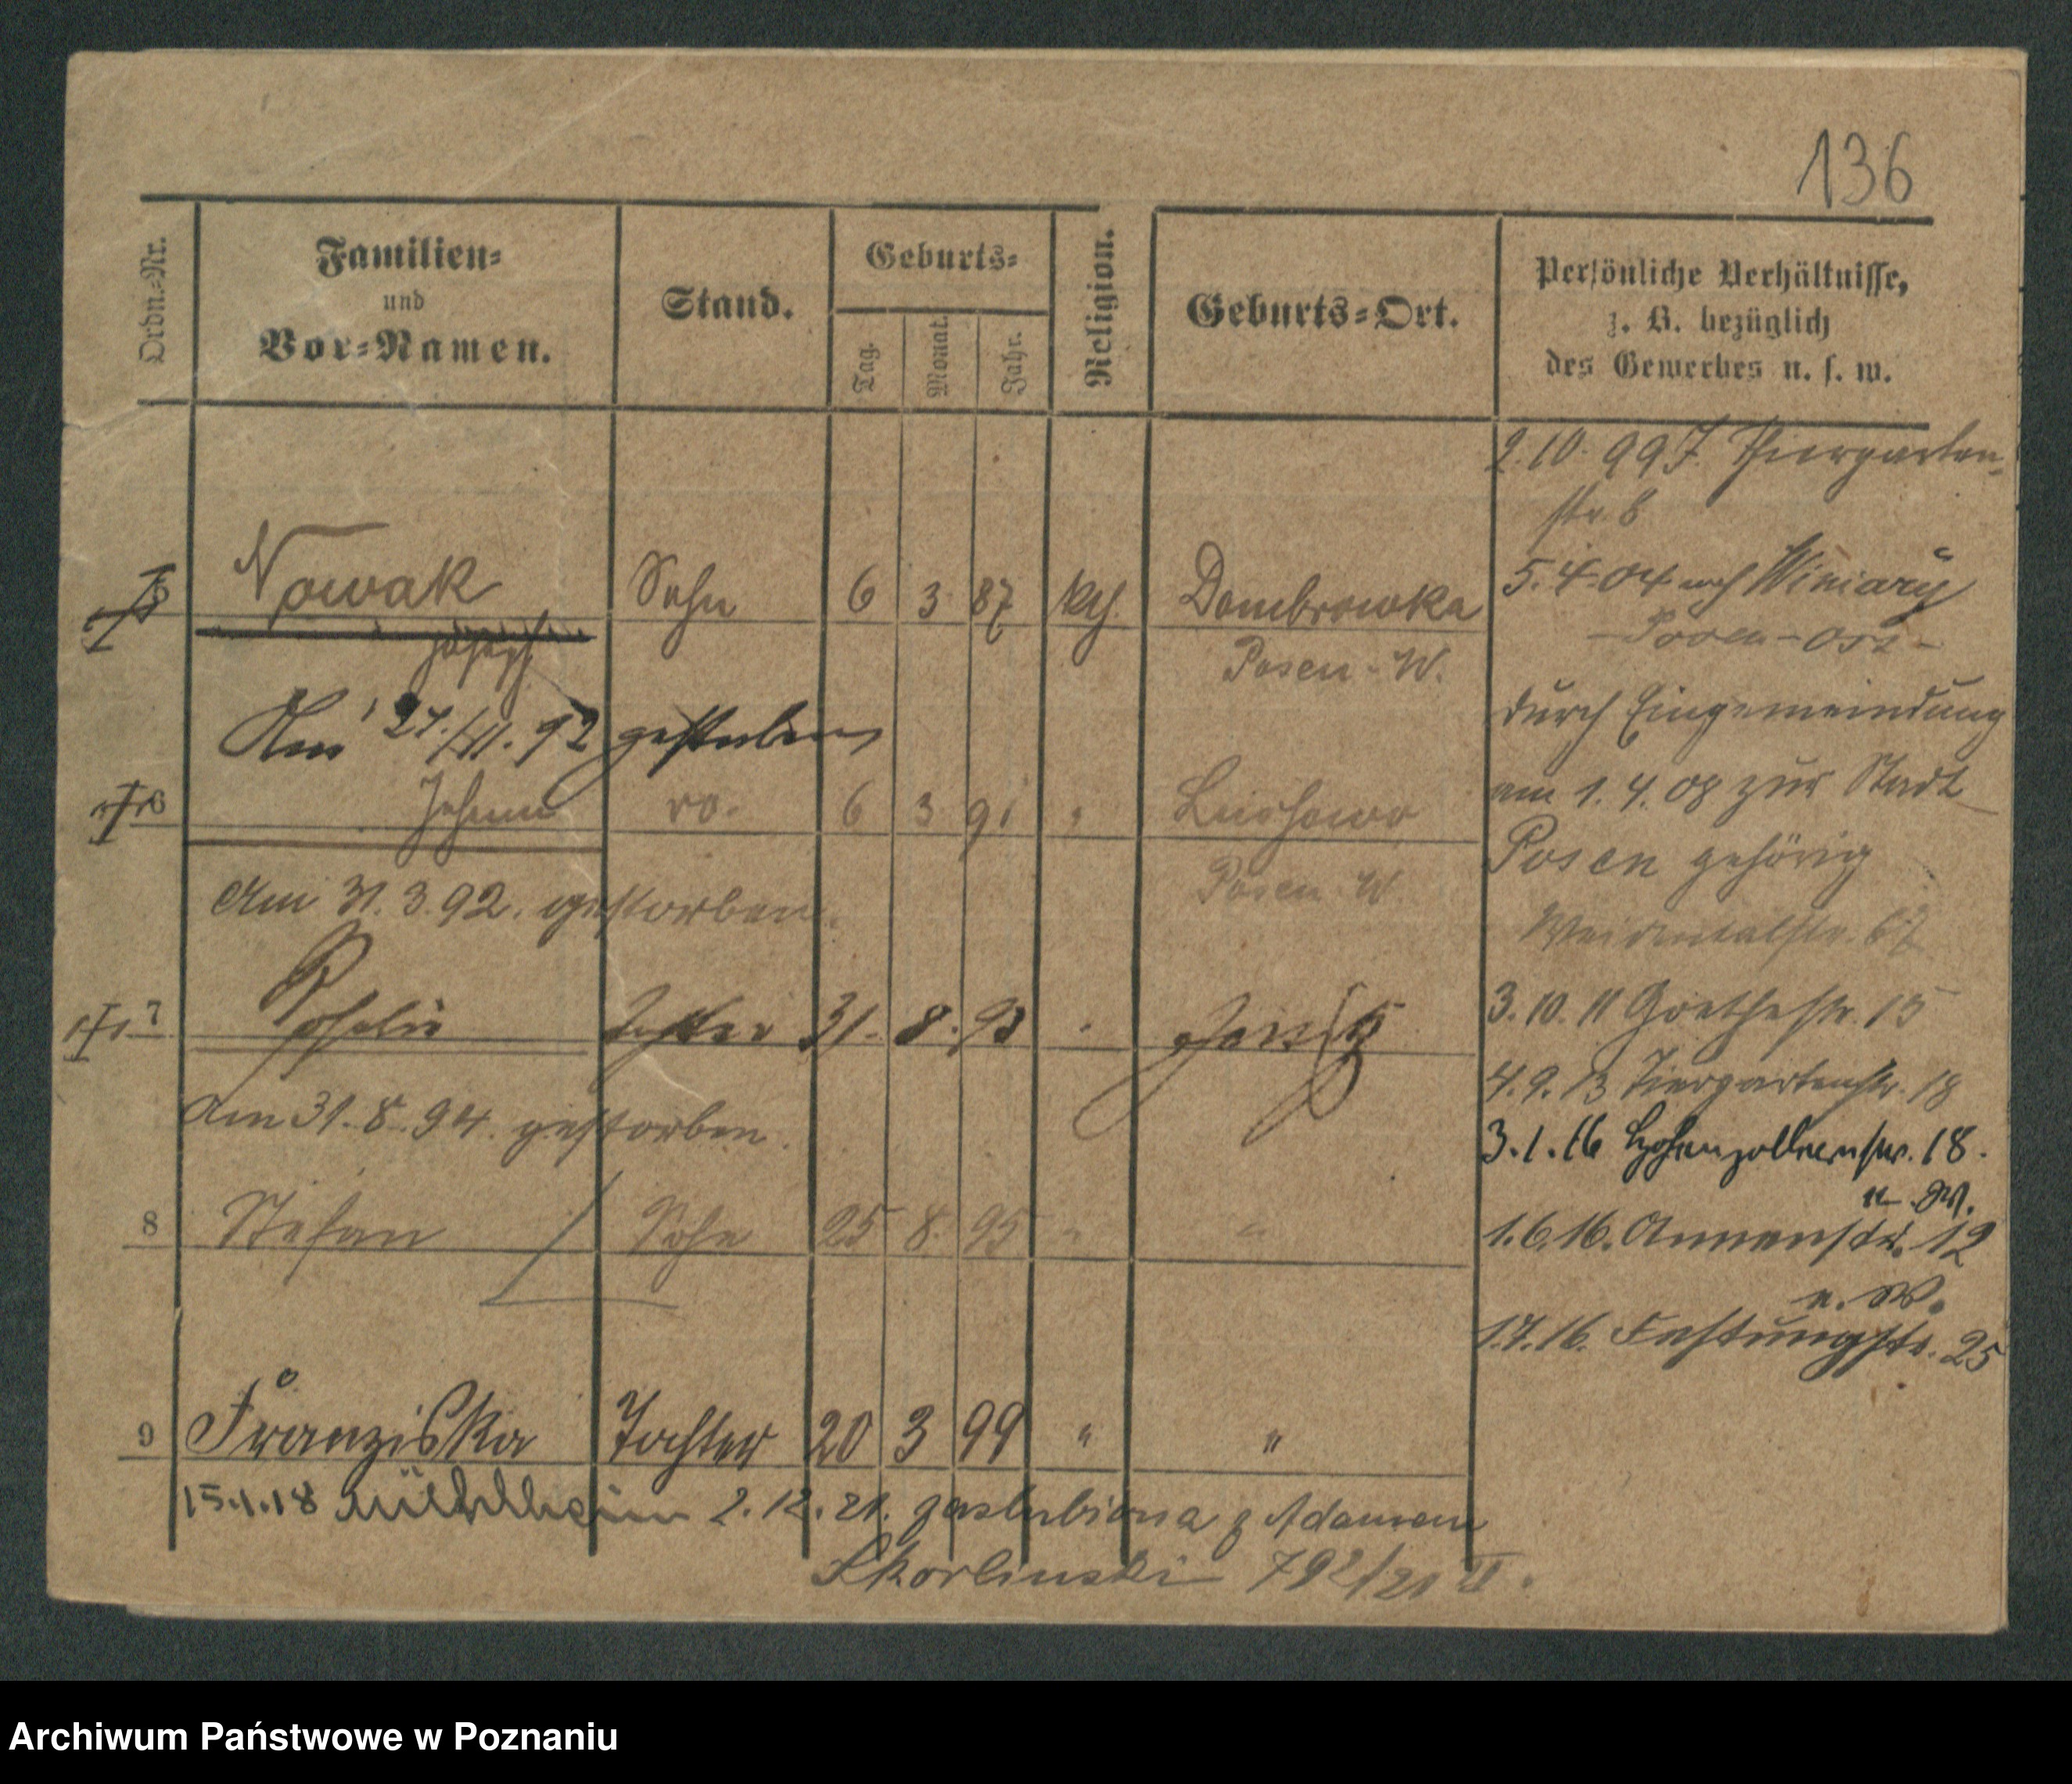 136
Ordn.-Nr.
Familien-
und
Vor-Namen.
Stand.
Geburts-
Tag.
Monat.
Jahr.
Religion.
Geburts-Ort.
Persönliche Verhältnisse,
z. B. bezüglich
des Gewerbes u. s. w.
2.10.99 J. Thiergarten-
str. 8
5 Nowak Sohn 6 3 87 kth. Dombrowka
Joseph Posen-W.
Am 27./11. 92 gestorben
6 Johann do. 6 3 91 " Lussowo
Posen W.
Am 31.3.92. gestorben.
7 Tochter 31. 8. 93 "
Am 31.8.94. gestorben.
8 Stefan Sohn 25 8. 95 " "
9 Franziska Tochter 20 3 99 " "
15.1.18 2.12.21. zaślubiona z Adamem
792/21 II.
5.4.04 nach Winiary
Posen-Ost-
durch Eingemeindung
am 1.4.08 zur Stadt
Posen gehörig
3.10.11 Goethestr. 15
4.9.13 Tiergartenstr. 18
3.1.16 Hohenzollernstr. 18.
u. W.
1.6.16. Annenstr. 12
u. W.
1.7.16. Festungstr. 25
Archiwum Państwowe w Poznaniu